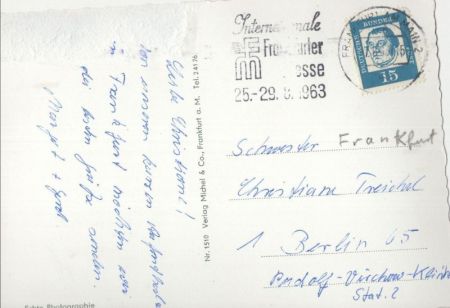 Liebe Christiane!
Von unserem kurzen Aufenthalt
in Frankfurt möchten wir
dir die besten Grüße senden.
Margot + Gerd
Echte Photographie
Nr. 1510 Verlag Michel & Co., Frankfurt a. M. Tel. 24176
Internationale
Frankfurter
Messe
25.-29. 8. 1963
FRANKFURT
DEUTSCHE BUNDESPOST
15
Frankfurt
Schwester
Christiane Treichel
1 Berlin 65
Rudolf-Virchow-Klinik
Stat. 2